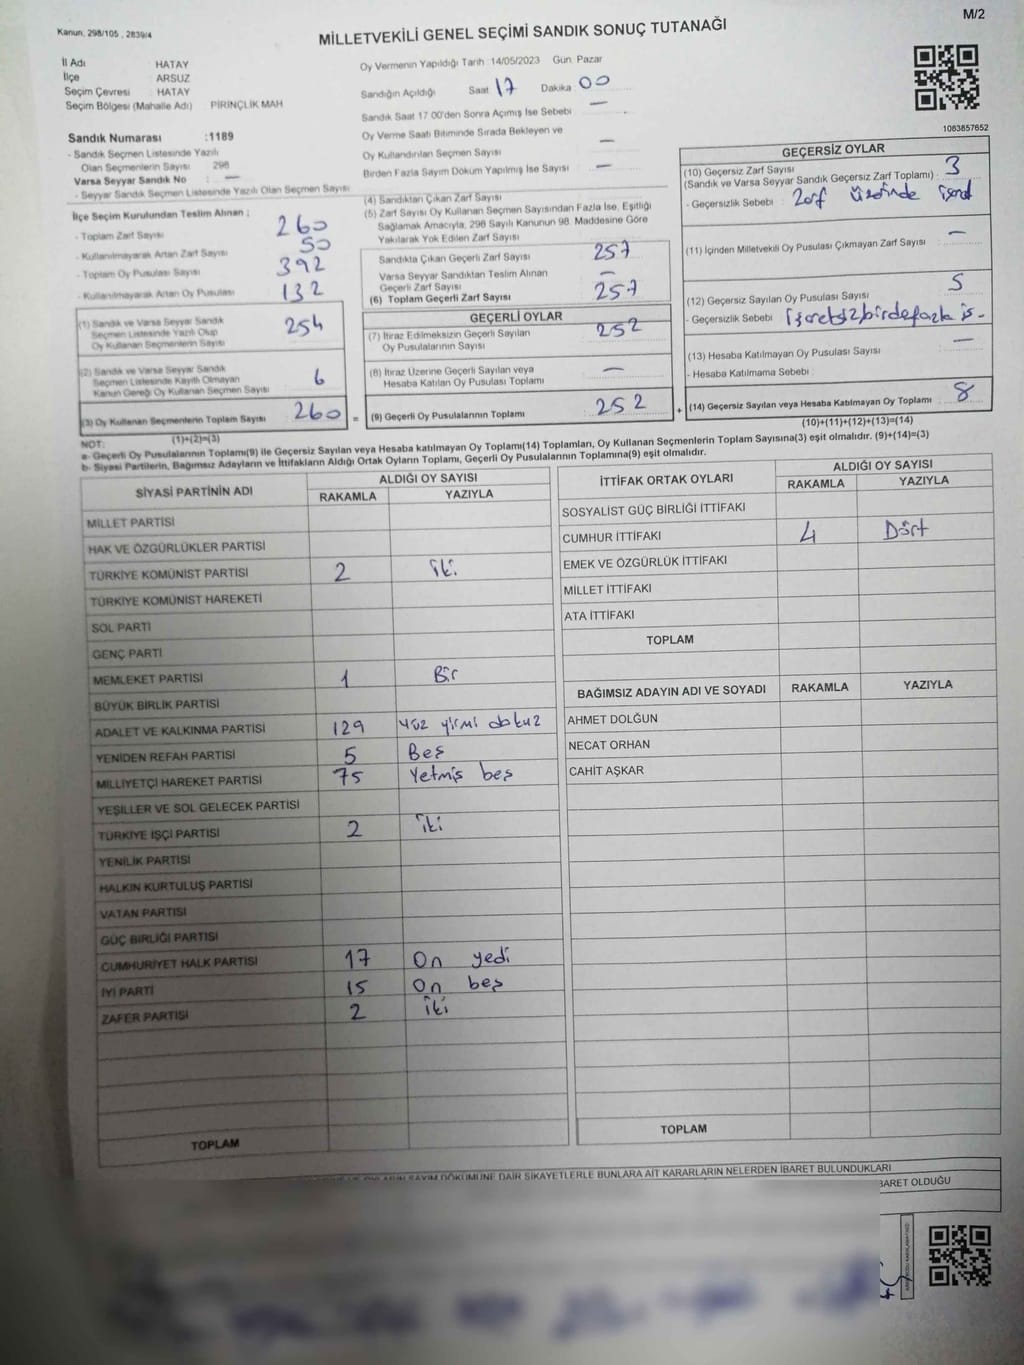 M/2
Kanun, 298/105 , 2839/4
MİLLETVEKİLİ GENEL SEÇİMİ SANDIK SONUÇ TUTANAĞI
İl Adı HATAY
İlçe ARSUZ
Seçim Çevresi : HATAY
Seçim Bölgesi (Mahalle Adı) PİRİNÇLİK MAH
Sandık Numarası :1189
- Sandık Seçmen Listesinde Yazılı
Olan Seçmenlerin Sayısı: 298
Varsa Seyyar Sandık No : —
- Seyyar Sandık Seçmen Listesinde Yazılı Olan Seçmen Sayısı
Oy Vermenin Yapıldığı Tarih :14/05/2023 Gün: Pazar
Sandığın Açıldığı Saat 17 Dakika 00
Sandık Saat 17 00'den Sonra Açılmış İse Sebebi —
Oy Verme Saati Bitiminde Sırada Bekleyen ve
Oy Kullandırılan Seçmen Sayısı —
Birden Fazla Sayım Döküm Yapılmış İse Sayısı —
1063857652
İlçe Seçim Kurulundan Teslim Alınan ;
- Toplam Zarf Sayısı 260
- Kullanılmayarak Artan Zarf Sayısı 50
- Toplam Oy Pusulası Sayısı 392
- Kullanılmayarak Artan Oy Pusulası 132
(1) Sandık ve Varsa Seyyar Sandık
Seçmen Listesinde Yazılı Olup
Oy Kullanan Seçmenlerin Sayısı 254
(2) Sandık ve Varsa Seyyar Sandık
Seçmen Listesinde Kayıtlı Olmayan
Kanun Gereği Oy Kullanan Seçmen Sayısı 6
(3) Oy Kullanan Seçmenlerin Toplam Sayısı 260 =
(1)+(2)=(3)
(4) Sandıktan Çıkan Zarf Sayısı
(5) Zarf Sayısı Oy Kullanan Seçmen Sayısından Fazla İse, Eşitliği
Sağlamak Amacıyla, 298 Sayılı Kanunun 98. Maddesine Göre
Yakılarak Yok Edilen Zarf Sayısı
Sandıkta Çıkan Geçerli Zarf Sayısı 257
Varsa Seyyar Sandıktan Teslim Alınan
Geçerli Zarf Sayısı —
(6) Toplam Geçerli Zarf Sayısı 257
GEÇERLİ OYLAR
(7) İtiraz Edilmeksizin Geçerli Sayılan
Oy Pusulalarının Sayısı 252
(8) İtiraz Üzerine Geçerli Sayılan veya
Hesaba Katılan Oy Pusulası Toplamı —
(9) Geçerli Oy Pusulalarının Toplamı 252 +
GEÇERSİZ OYLAR
(10) Geçersiz Zarf Sayısı 3
(Sandık ve Varsa Seyyar Sandık Geçersiz Zarf Toplamı) :
- Geçersizlik Sebebi : Zarf üzerinde işaret
(11) İçinden Milletvekili Oy Pusulası Çıkmayan Zarf Sayısı —
(12) Geçersiz Sayılan Oy Pusulası Sayısı 5
- Geçersizlik Sebebi işaretsiz/birdefazla is-
(13) Hesaba Katılmayan Oy Pusulası Sayısı —
- Hesaba Katılmama Sebebi :
(14) Geçersiz Sayılan veya Hesaba Katılmayan Oy Toplamı 8
(10)+(11)+(12)+(13)=(14)
NOT:
a- Geçerli Oy Pusulalarının Toplamı(9) ile Geçersiz Sayılan veya Hesaba katılmayan Oy Toplamı(14) Toplamları, Oy Kullanan Seçmenlerin Toplam Sayısına(3) eşit olmalıdır. (9)+(14)=(3)
b- Siyasi Partilerin, Bağımsız Adayların ve İttifakların Aldığı Ortak Oyların Toplamı, Geçerli Oy Pusulalarının Toplamına(9) eşit olmalıdır.
SİYASİ PARTİNİN ADI ALDIĞI OY SAYISI
RAKAMLA YAZIYLA
MİLLET PARTİSİ
HAK VE ÖZGÜRLÜKLER PARTİSİ
TÜRKİYE KOMÜNİST PARTİSİ 2 iki
TÜRKİYE KOMÜNİST HAREKETİ
SOL PARTİ
GENÇ PARTİ
MEMLEKET PARTİSİ 1 Bir
BÜYÜK BİRLİK PARTİSİ
ADALET VE KALKINMA PARTİSİ 129 yüz yirmi dokuz
YENİDEN REFAH PARTİSİ 5 Beş
MİLLİYETÇİ HAREKET PARTİSİ 75 Yetmiş beş
YEŞİLLER VE SOL GELECEK PARTİSİ
TÜRKİYE İŞÇİ PARTİSİ 2 iki
YENİLİK PARTİSİ
HALKIN KURTULUŞ PARTİSİ
VATAN PARTİSİ
GÜÇ BİRLİĞİ PARTİSİ
CUMHURİYET HALK PARTİSİ 17 On yedi
İYİ PARTİ 15 On beş
ZAFER PARTİSİ 2 iki
TOPLAM
İTTİFAK ORTAK OYLARI ALDIĞI OY SAYISI
RAKAMLA YAZIYLA
SOSYALİST GÜÇ BİRLİĞİ İTTİFAKI
CUMHUR İTTİFAKI 4 Dört
EMEK VE ÖZGÜRLÜK İTTİFAKI
MİLLET İTTİFAKI
ATA İTTİFAKI
TOPLAM
BAĞIMSIZ ADAYIN ADI VE SOYADI RAKAMLA YAZIYLA
AHMET DOLĞUN
NECAT ORHAN
CAHİT AŞKAR
TOPLAM
SAYIM DÖKÜMÜNE DAİR ŞİKAYETLERLE BUNLARA AİT KARARLARIN NELERDEN İBARET BULUNDUKLARI
BARET OLDUĞU